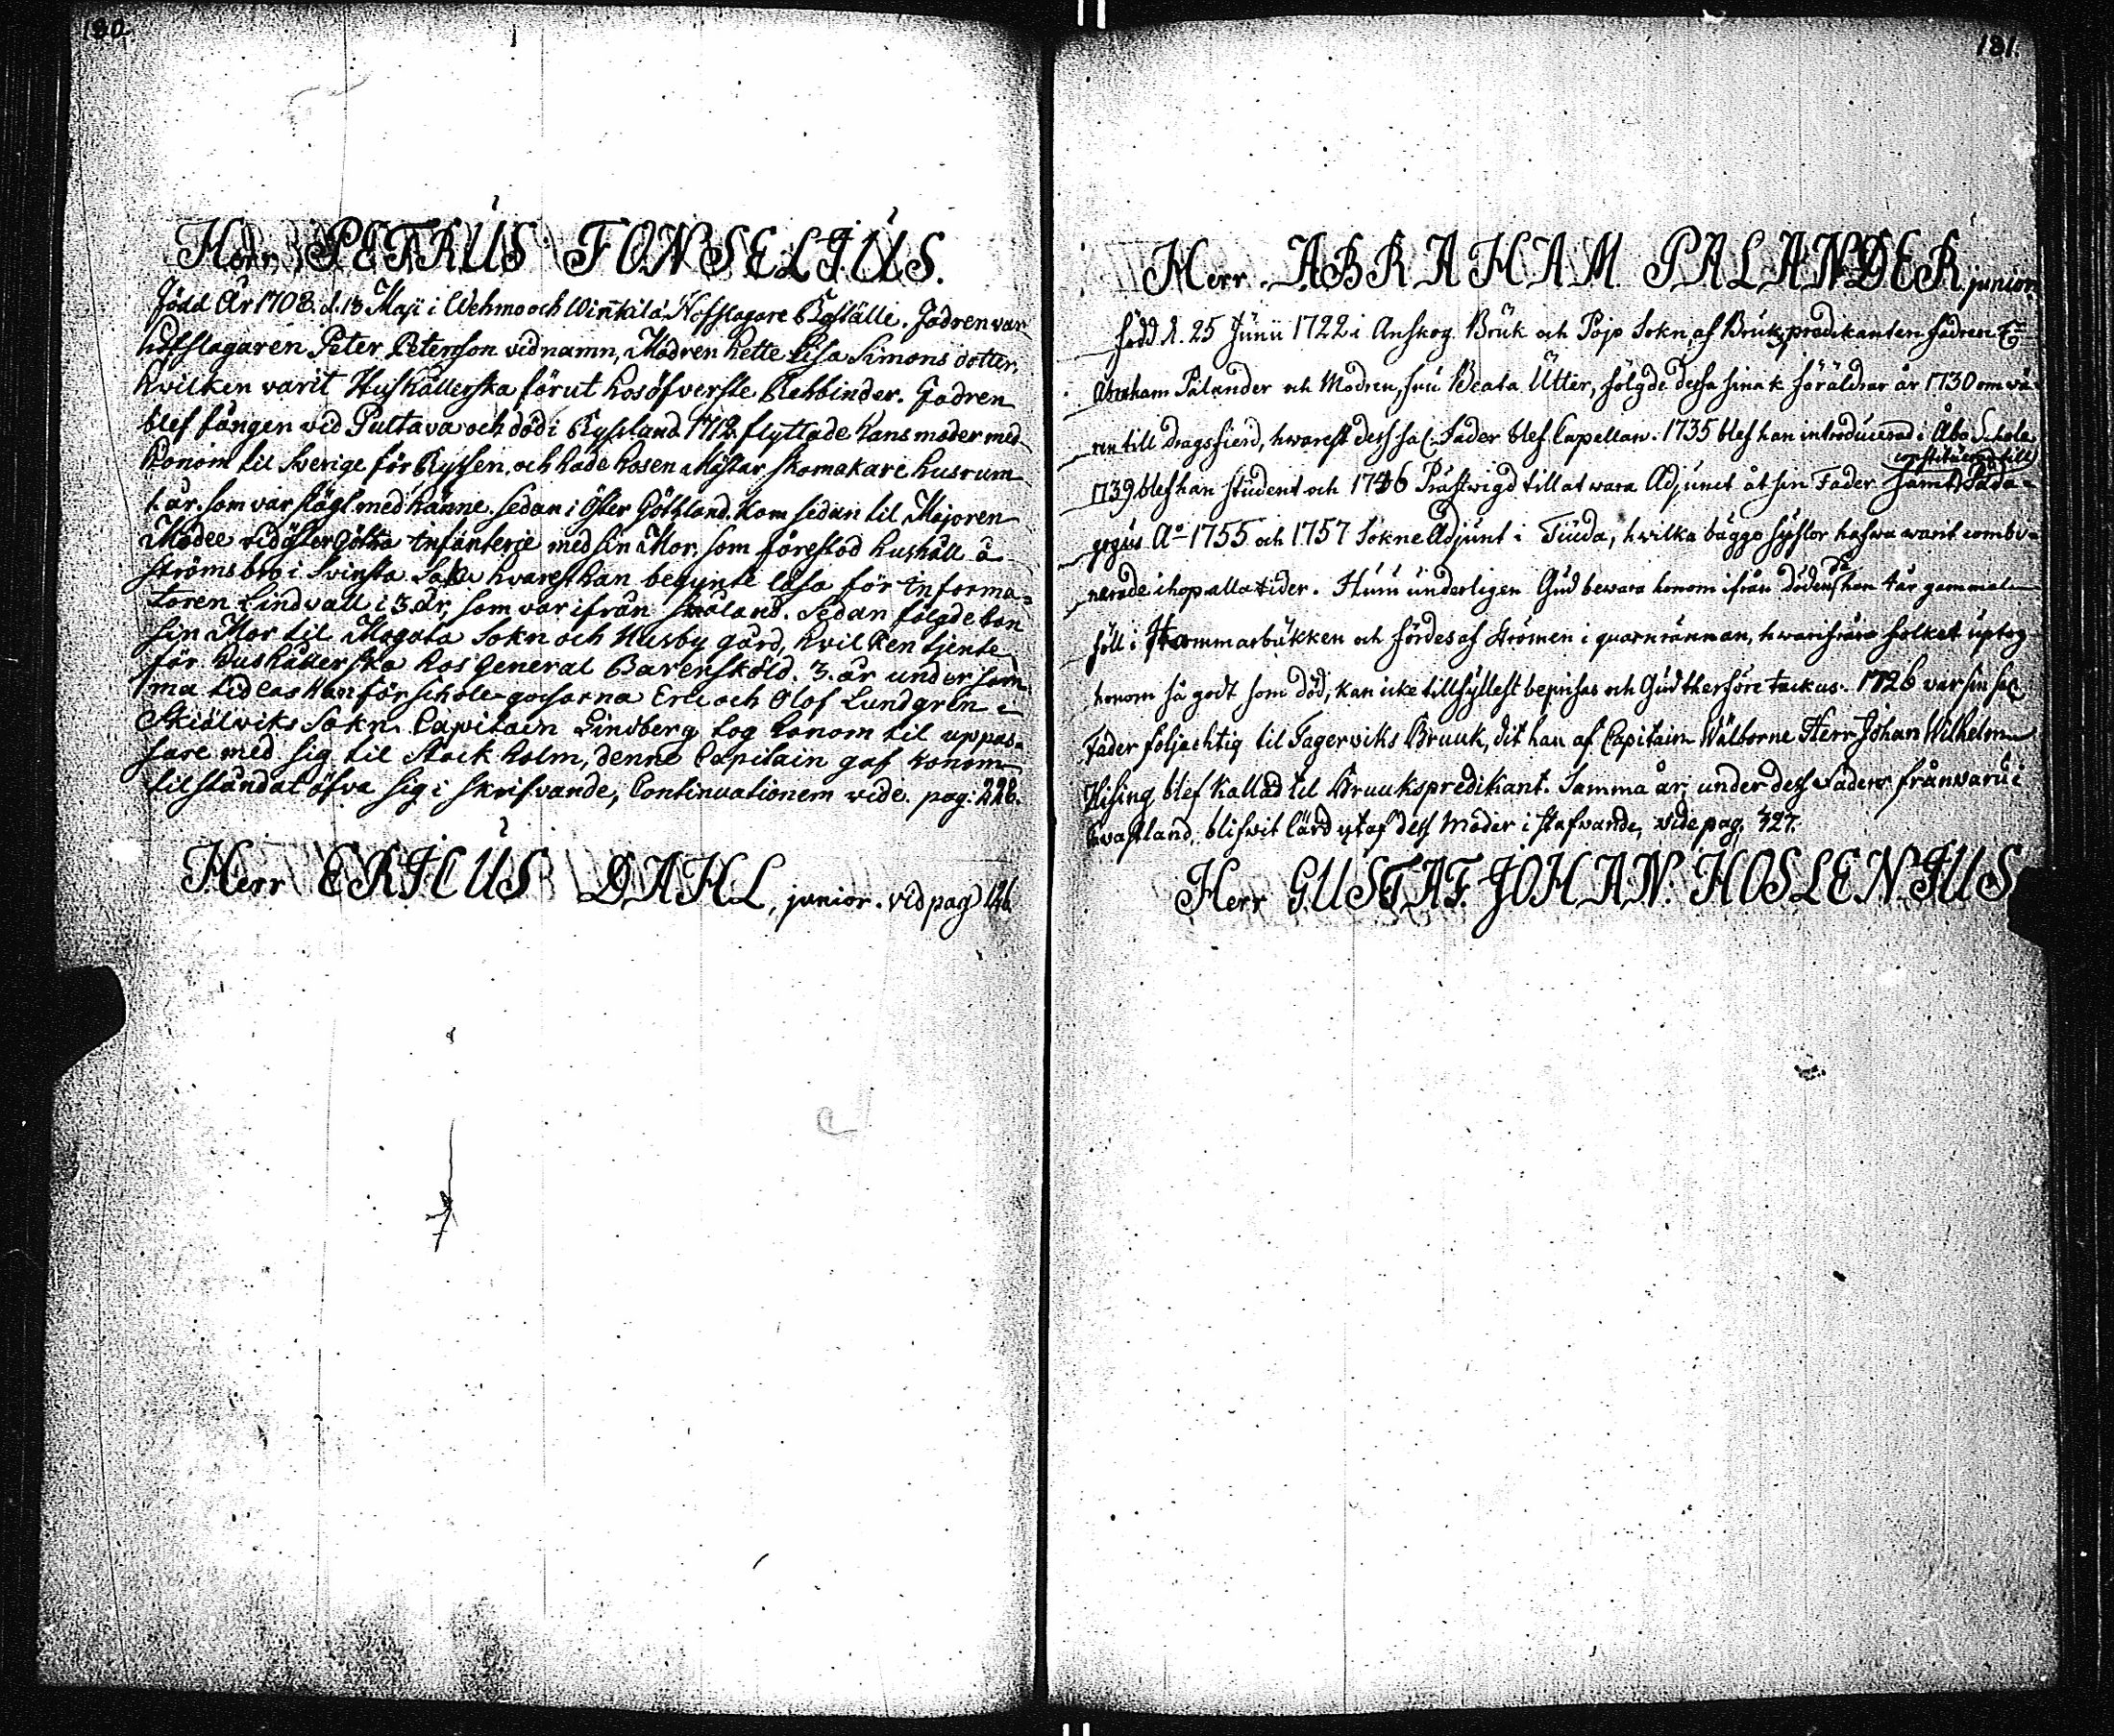 180.
Herr PETRUS FONSELIUS.
Född År 1708. d. 13 Maji i Wehmo och Winkilä Hofslagare Bställe. Fadren var
hofslagaren Peter Peterson vid namn, Modren hette Lisa Simons dotter,
hvilken varit Hushållerska förut hos öfverste Rehbinder. Fadren
blef fången vid Pultava och död i Ryssland. 1712. flyttade hans moder med
honom til Sverige för Ryssen, och hade hos en Mästar skomakare husrum
1. år. som var slägt med hänne. sedan i Öster Göthland. Kom sedan til Majoren
Modee vid Öster Götha infanterie med sin Mor. som förestod hushåll å
Strömsbro i Svinsta Sokn hvarest han begynte läsa för informa=
toren Lindvall i 3. år, som var ifrån Småland. Sedan fölgde han
sin Mor til Mogata Sokn och Husby gård, hvilken tjente
för Hushållerska hos General Barensköld. 3. år under sam
ma tid las han för schole-gossarna Eric och Olof Lundgren i
Skiälviks Sokn. Capitain Lindberg tog honom til uppas=
sare med sig til Stockholm, denne Capitain gaf honom
tilstånd at öfva sig i skrifvande, Continuationem vide. pag: 228.
Herr ERICUS DAHL, junior. vid pag 126.
181.
Herr ABRAHAM PALANDER junior.
född d. 25 Junii 1722 i Anskog Bruk och Pojo Sokn, af Bruks predikanten fadren
Abraham Palander och Modren, fru Beata Utter, fölgde dessa sina k föräldrar år 1730 om wå=
ren till Dragsfierd, hwarest dess sal. Fader blef Capellan. 1735 blef han introducerad i Åbo Schola
constituerad till
1739 blef han student och 1746 Prästwigd till at wara Adjunct åt sin Fader samt Päda=
gogus A:o 1755 och 1757 Sokne Adjunt i Finda, hwilka bägge syslor hafwa warit combi=
då
nerade ihop alla tider. Huru underligen Gud bewara honom ifrån döden han 4 år gammal
föll i Hammarbäkken och fördes af strömen i quarnrännan, hwarifrån folket uptog
honom så godt som död, kan icke tillfyllest beprisas och Gud therföre tackas. 1726 var sin sal
Fader följachtig til Fagerwiks Bruuk, dit han af Capitain Wälborne Herr Johan Wilhelm
Hising blef kallad til Bruukspredikant. Samma år, under dess Faders frånvaru i
Swartland, blifwit lärd ytaf dess moder i stafvande, vide pag. 427.
Herr GUSTAF. JOHAN. HOSLENIUS